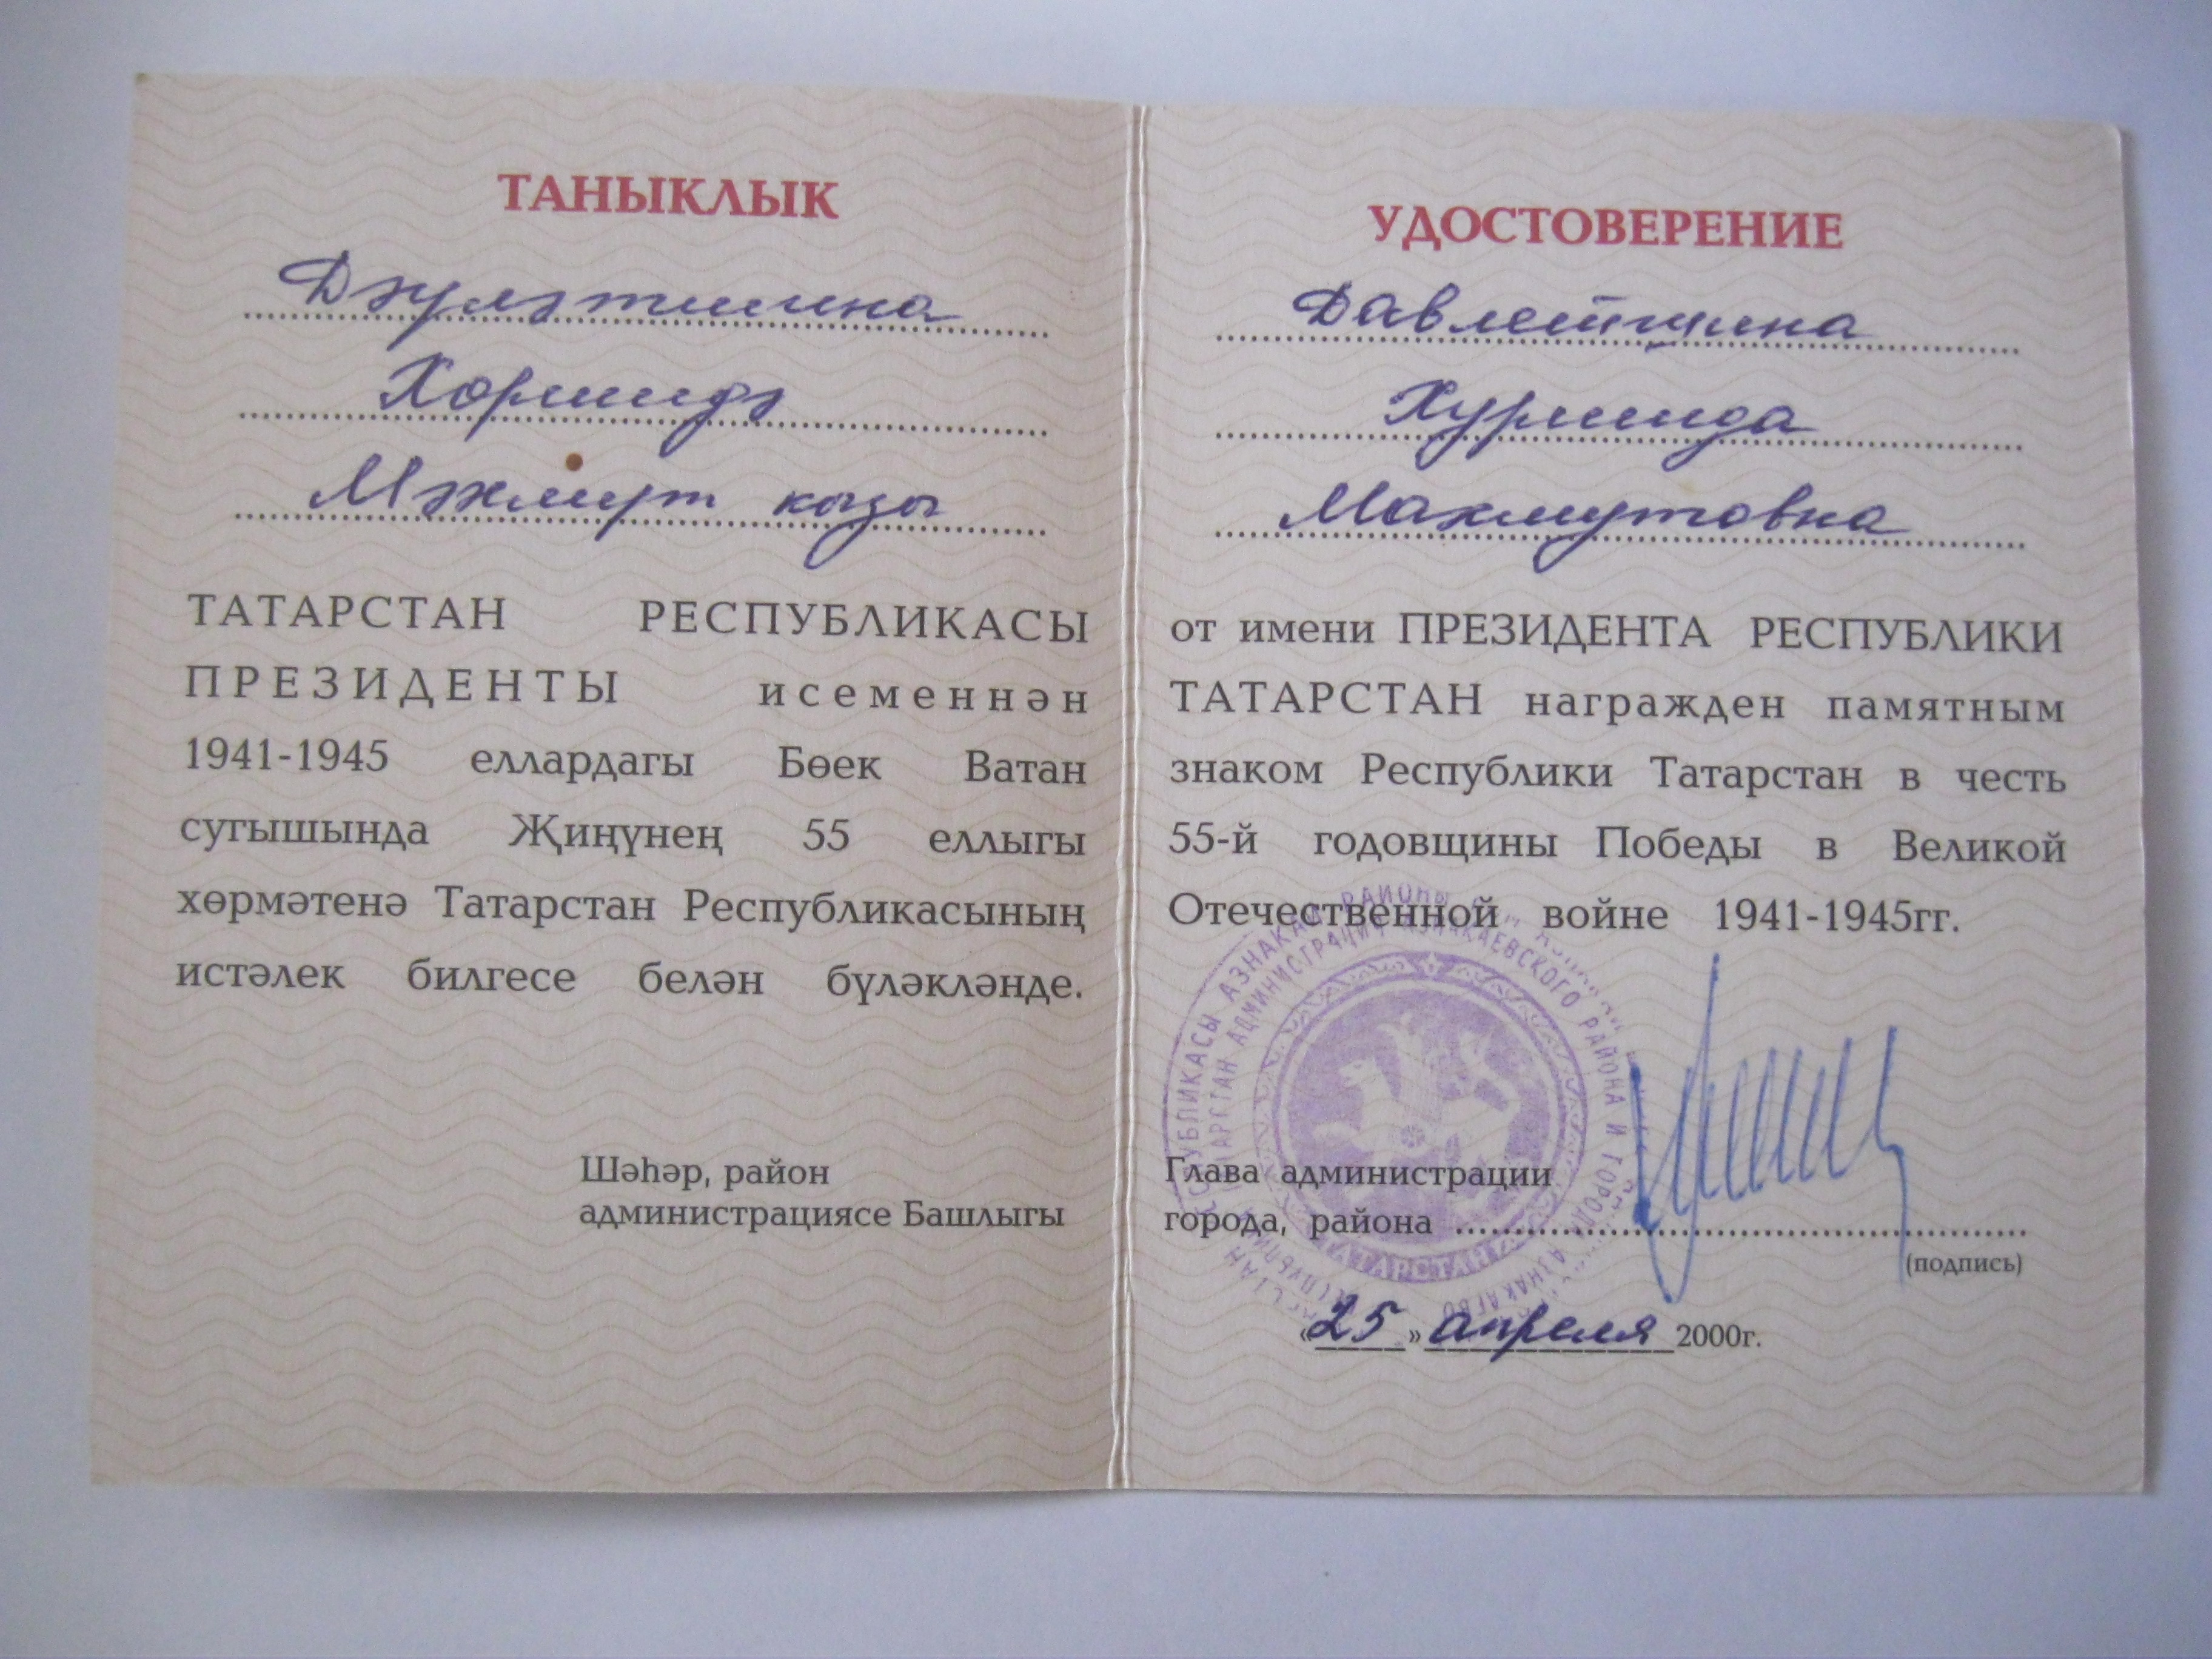 ТАНЫКЛЫК
Дәүләтшина
Хөршидә
Мәхмүт кызы
ТАТАРСТАН РЕСПУБЛИКАСЫ
ПРЕЗИДЕНТЫ исеменнән
1941-1945 еллардагы Бөек Ватан
сугышында Җиңүнең 55 еллыгы
хөрмәтенә Татарстан Республикасының
истәлек билгесе белән бүләкләнде.
Шәһәр, район
администрациясе Башлыгы
УДОСТОВЕРЕНИЕ
Давлетшина
Хуршида
Махмутовна
от имени ПРЕЗИДЕНТА РЕСПУБЛИКИ
ТАТАРСТАН награжден памятным
знаком Республики Татарстан в честь
55-й годовщины Победы в Великой
Отечественной войне 1941-1945гг.
Глава администрации
города, района
(подпись)
«25» апреля 2000г.
АЗНАКАЙ РАЙОНЫ
АДМИНИСТРАЦИЯ АЗНАКАЕВСКОГО РАЙОНА И ГОРОДА АЗНАКАЕВО
ТАТАРСТАН